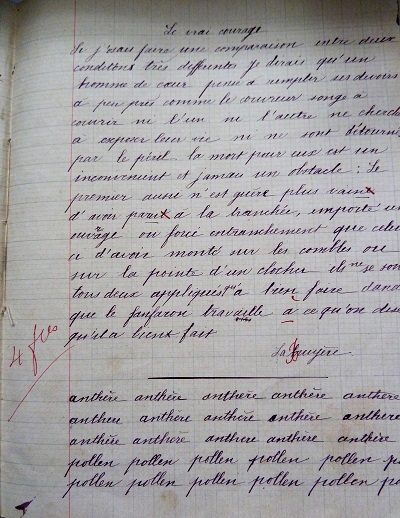 Le vrai courage
Si j'osais faire une comparaison entre deux
conditions très différentes je dirais qu'un
homme de cœur pense à remplir ses devoirs
à peu près comme le couvreur songe à
couvrir ni l'un ni l'autre ne cherche
à exposer leur vie ni ne sont détourné
par le péril la mort pour eux est un
inconvenient et jamais un obstacle ; Le
premier aussi n'est guère plus vain
d'avoir paru à la tranchée, emporté un
ouvrage ou forcé entranchement que celui
ci d'avoir monté sur les combles ou
sur la pointe d'un clocher ils ne se sont
tous deux appliqués qu'à bien faire dand
que le fanfaron travaille à ce qu'on dise
qu'il a bien fait
La Bruyère
4 fces
anthère anthère anthère anthère anthere
anthere anthere anthère anthère anthere
anthère anthère anthère anthère anthère
pollen pollen pollen pollen pollen po
pollen pollen pollen pollen pollen po